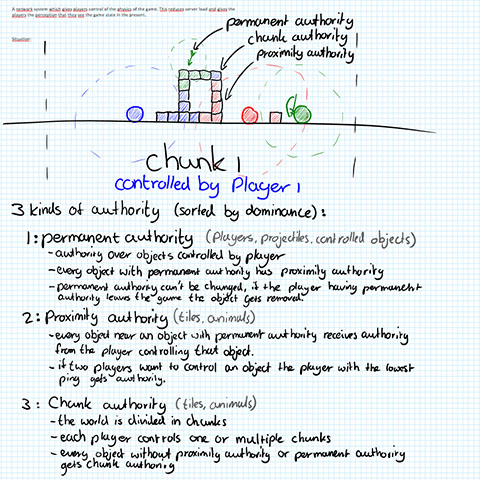 A network system which gives players control of the physics of the game. This reduces server load and gives the
players the perception that they see the game state in the present.
Situation:
permanent authority
chunk authority
proximity authority
chunk 1
controlled by Player 1
3 kinds of authority (sorted by dominance):
1: permanent authority (Players, projectiles, controlled objects)
- authority over objects controlled by player
- every object with permanent authority has proximity authority
- permanent authority can't be changed, if the player having permanent
authority leaves the game the object gets removed.
2: Proximity authority (tiles, animals)
- every object near an object with permanent authority receives authority
from the player controlling that object.
- if two players want to control an object the player with the lowest
ping gets authority.
3: Chunk authority (tiles, animals)
- the world is divided in chunks
- each player controls one or multiple chunks
- every object without proximity authority or permanent authority
gets chunk authority